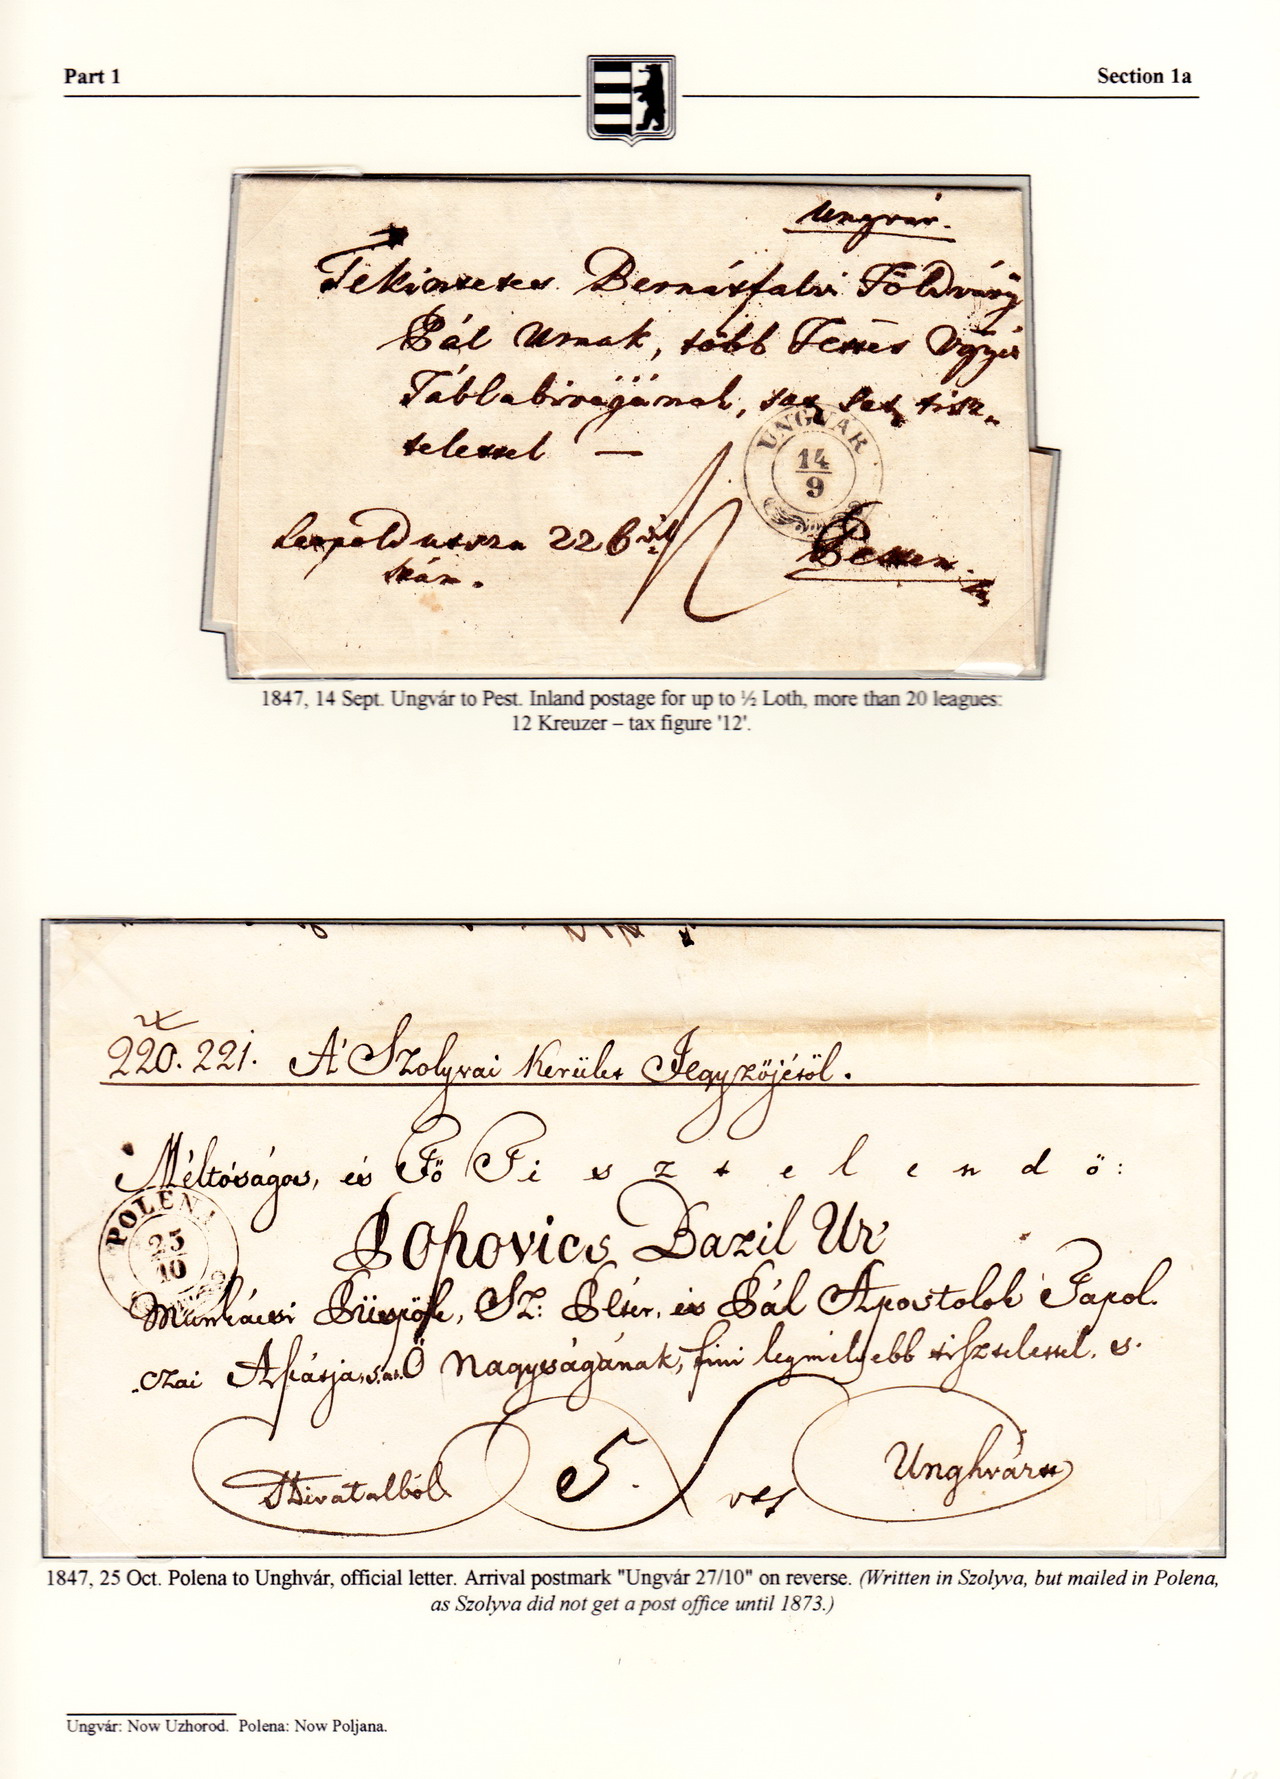 Part 1
Section 1a
Ungvár.
Tekintetes Bernátfalvi Földváry
Pál Urnak, több Ttes Vgyé
Táblabirájának,
telettel —
UNGVÁR
14
9
Leopold utsza 226
szám.
Pesten.
12
1847, 14 Sept. Ungvár to Pest. Inland postage for up to ½ Loth, more than 20 leagues:
12 Kreuzer – tax figure '12'.
220. 221. A' Szolyvai Kerület Jegyzőjétől.
Méltóságos, és Fő Tisztelendő:
POLENA
25
10
Popovics Bazil Ur
Munkácsi Püspök, Sz: Péter, és Pál Apostolok Tapol.
czai Apátja, Ő Nagyságának, legmélyebb tisztelettel.
Hivatalból
5.
Unghvárt
1847, 25 Oct. Polena to Unghvár, official letter. Arrival postmark "Ungvár 27/10" on reverse. (Written in Szolyva, but mailed in Polena,
as Szolyva did not get a post office until 1873.)
Ungvár: Now Uzhorod. Polena: Now Poljana.